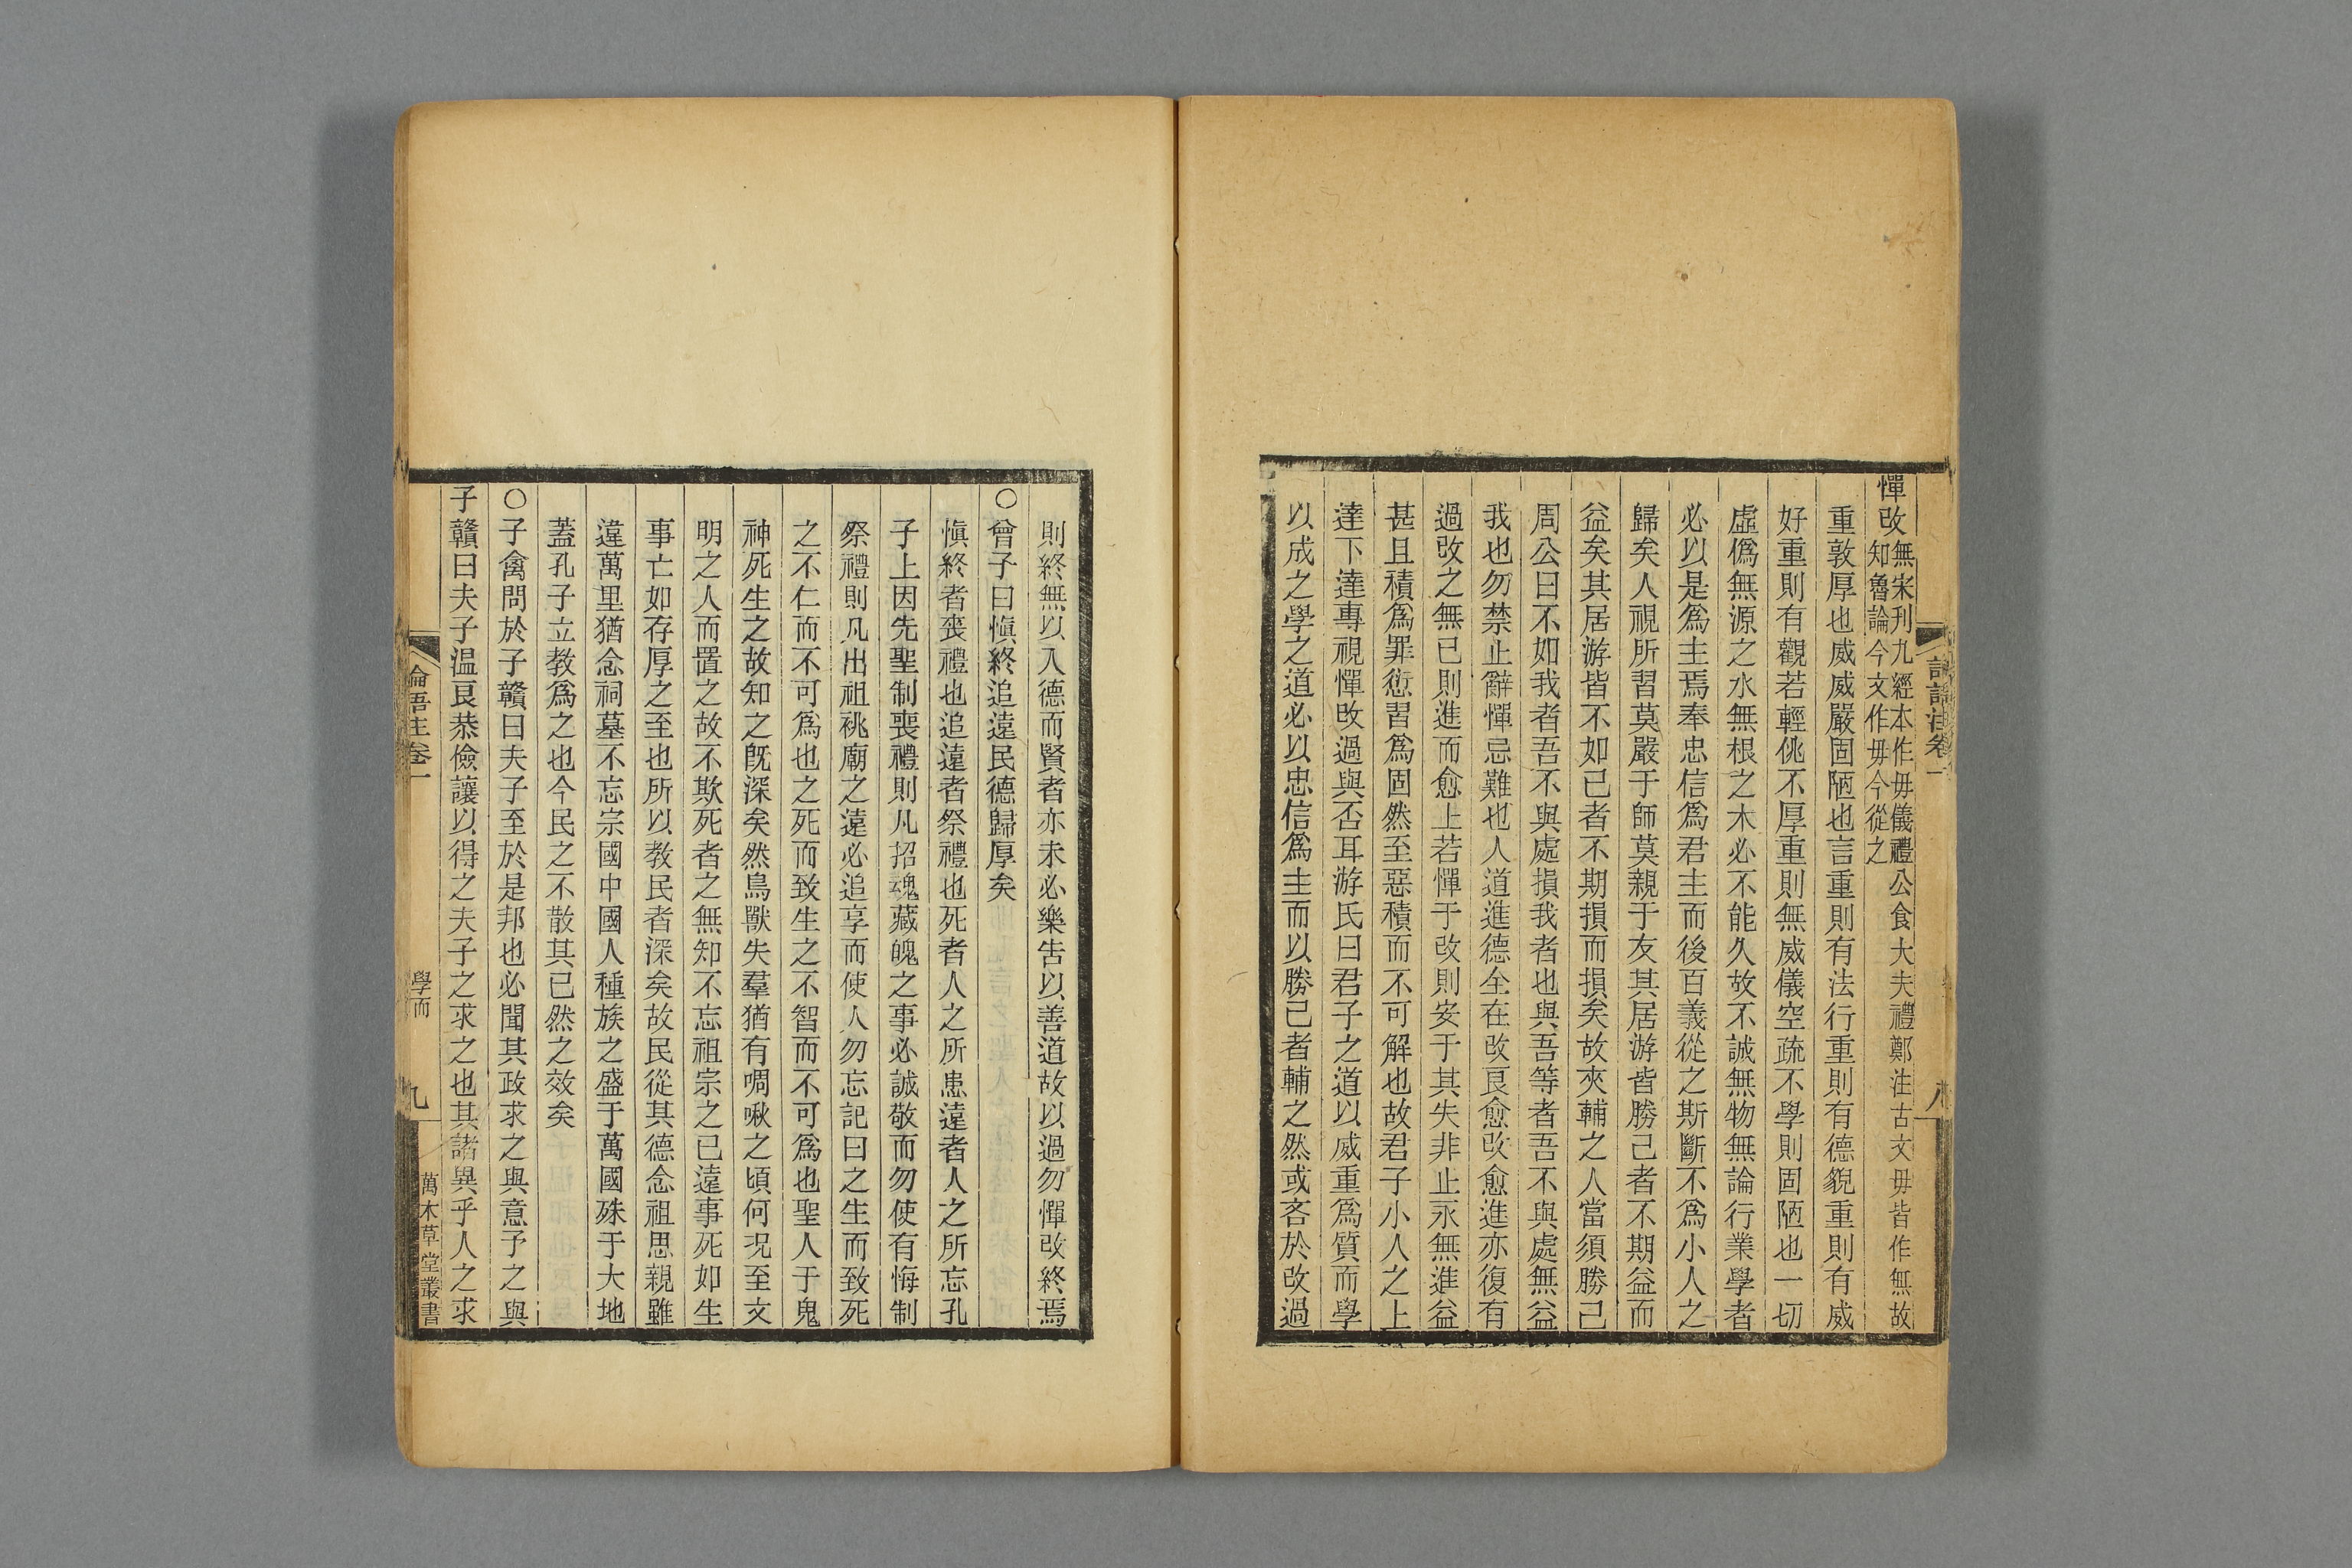 憚改無宋刊九經本作毋儀禮公食大夫禮鄭注古文毋皆作無故
知魯論今文作毋今從之
重敦厚也威威嚴固陋也言重則有法行重則有德貌重則有威
好重則有觀若輕佻不厚重則無威儀空疏不學則固陋也一切
虛僞無源之水無根之木必不能久故不誠無物無論行業學者
必以是爲主焉奉忠信爲君主而後百義從之斯斷不爲小人之
歸矣人視所習莫嚴于師莫親于友其居游皆勝己者不期益而
益矣其居游皆不如己者不期損而損矣故夾輔之人當須勝己
周公曰不如我者吾不與處損我者也與吾等者吾不與處無益
我也勿禁止辭憚忌難也人道進德全在改良愈改愈進亦復有
過改之無已則進而愈上若憚于改則安于其失非止永無進益
甚且積爲罪愆習爲固然至惡積而不可解也故君子小人之上
達下達專視憚改過與否耳游氏曰君子之道以威重爲質而學
以成之學之道必以忠信爲主而以勝己者輔之然或吝於改過
論語注卷一
八
則終無以入德而賢者亦未必樂吿以善道故以過勿憚改終焉
○曾子曰愼終追遠民德歸厚矣
愼終者喪禮也追遠者祭禮也死者人之所恚遠者人之所忘孔
子上因先聖制喪禮則凡招魂藏魄之事必誠敬而勿使有悔制
祭禮則凡出祖祧廟之遠必追享而使人勿忘記曰之生而致死
之不仁而不可爲也之死而致生之不智而不可爲也聖人于鬼
神死生之故知之旣深矣然鳥獸失羣猶有啁啾之頃何況至文
明之人而置之故不欺死者之無知不忘祖宗之已遠事死如生
事亡如存厚之至也所以教民者深矣故民從其德念祖思親雖
違萬里猶念祠墓不忘宗國中國人種族之盛于萬國殊于大地
蓋孔子立教爲之也今民之不散其已然之效矣
○子禽問於子贛曰夫子至於是邦也必聞其政求之與意予之與
子贛曰夫子温良恭儉讓以得之夫子之求之也其諸異乎人之求
論語注卷一
學而
九
萬木草堂叢書